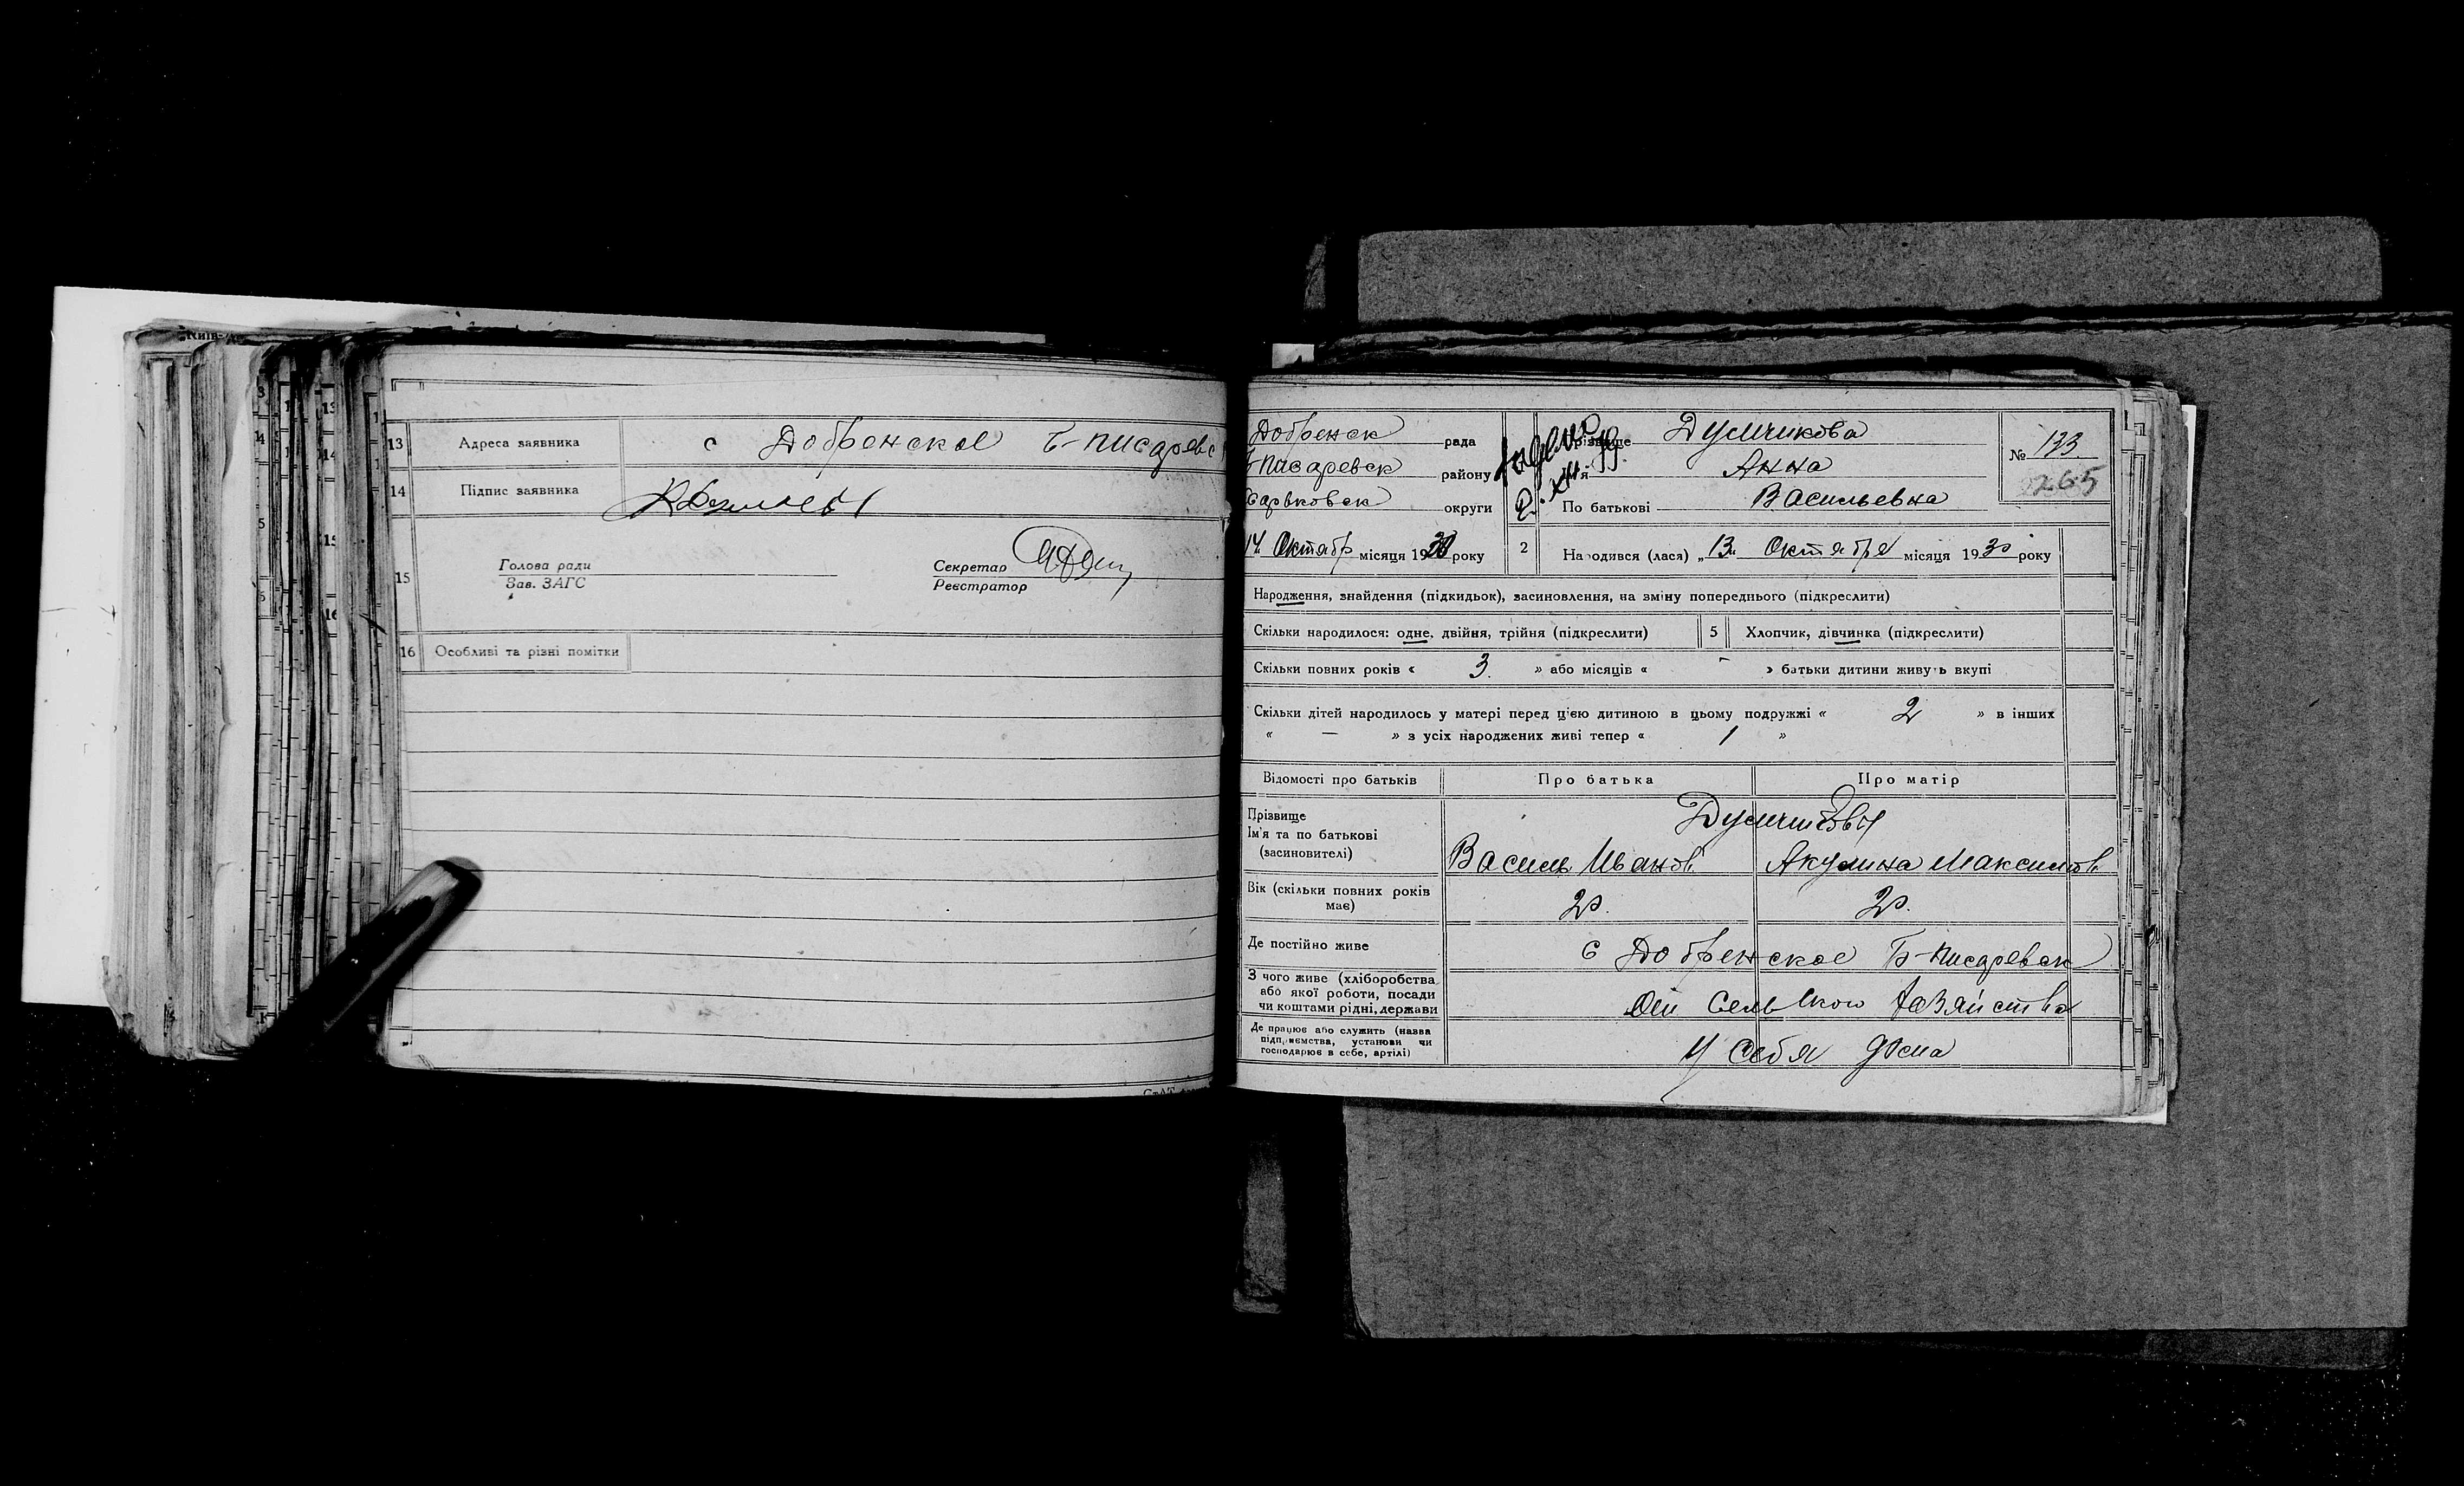 13 Адреса заявника с Добренское Б-писаревс
14 Підпис заявника
15 Голова ради
Зав. ЗАГС
Секретар
Реєстратор
16 Особливі та різні помітки
Добренск рада
Б-писаревск району
Харьковск округи
14 Октябр місяця 1930 року
Прізвище Думчикова
Ім'я Анна
По батькові Васильевна
№ 133
265
2 Народився (лася) „13" Октября місяця 1930 року
Народження, знайдення (підкидьок), засиновлення, на зміну попереднього (підкреслити)
Скільки народилося: одне, двійня, трійня (підкреслити) 5 Хлопчик, дівчинка (підкреслити)
Скільки повних років « 3 » або місяців « - » батьки дитини живуть вкупі
Скільки дітей народилось у матері перед цією дитиною в цьому подружжі « 2 » в інших
« — » з усіх народжених живі тепер « 1 »
Відомості про батьків Про батька Про матір
Прізвище
Ім'я та по батькові
(засиновителі)
Василь Иванов Акулина Максимов
Вік (скільки повних років
має)
20. 20.
Де постійно живе с Добренское Б-писаревск
З чого живе (хліборобства
або якої роботи, посади
чи коштами рідні, держави
От Сельского хозяйства
Де працює або служить (назва
підприємства, установи чи
господарює в себе, артілі)
У себя дома